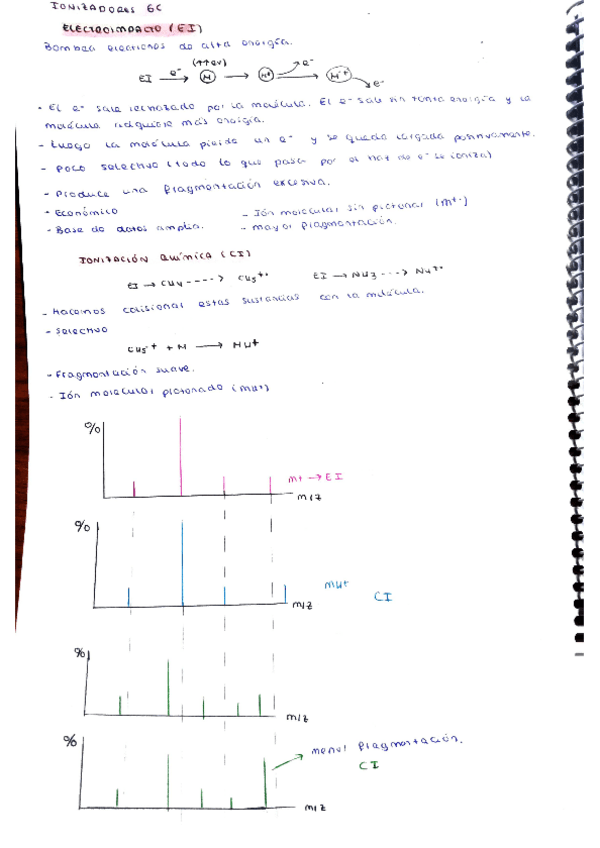 IONIZADORES GC
ELECTROIMPACTO (EI)
Bombea electrones de alta energía.
(↑↑eV)
EI e⁻ → M → M* → e⁻ → M⁺· → e⁻
- El e⁻ sale rechazado por la molécula. El e⁻ sale sin tanta energía y la
molécula adquiere más energía.
- Luego la molécula pierde un e⁻ y se queda cargada positivamente.
- Poco selectivo (todo lo que pasa por el haz de e⁻ se ioniza)
- Produce una fragmentación excesiva.
- Económico
- Ión molecular sin protonar (M⁺·)
- Base de datos amplia.
- mayor fragmentación.
IONIZACIÓN QUÍMICA (CI)
EI → CH4 ----> CH5⁺· EI → NH3 ---> NH4⁺·
- Hacemos colisionar estas sustancias con la molécula.
- Selectivo
CH5⁺ + M → MH+
- Fragmentación suave.
- Ión molecular protonado (MH+)
%
M+ → EI
m/z
%
MH+
CI
m/z
%
m/z
%
menor fragmentación.
CI
m/z